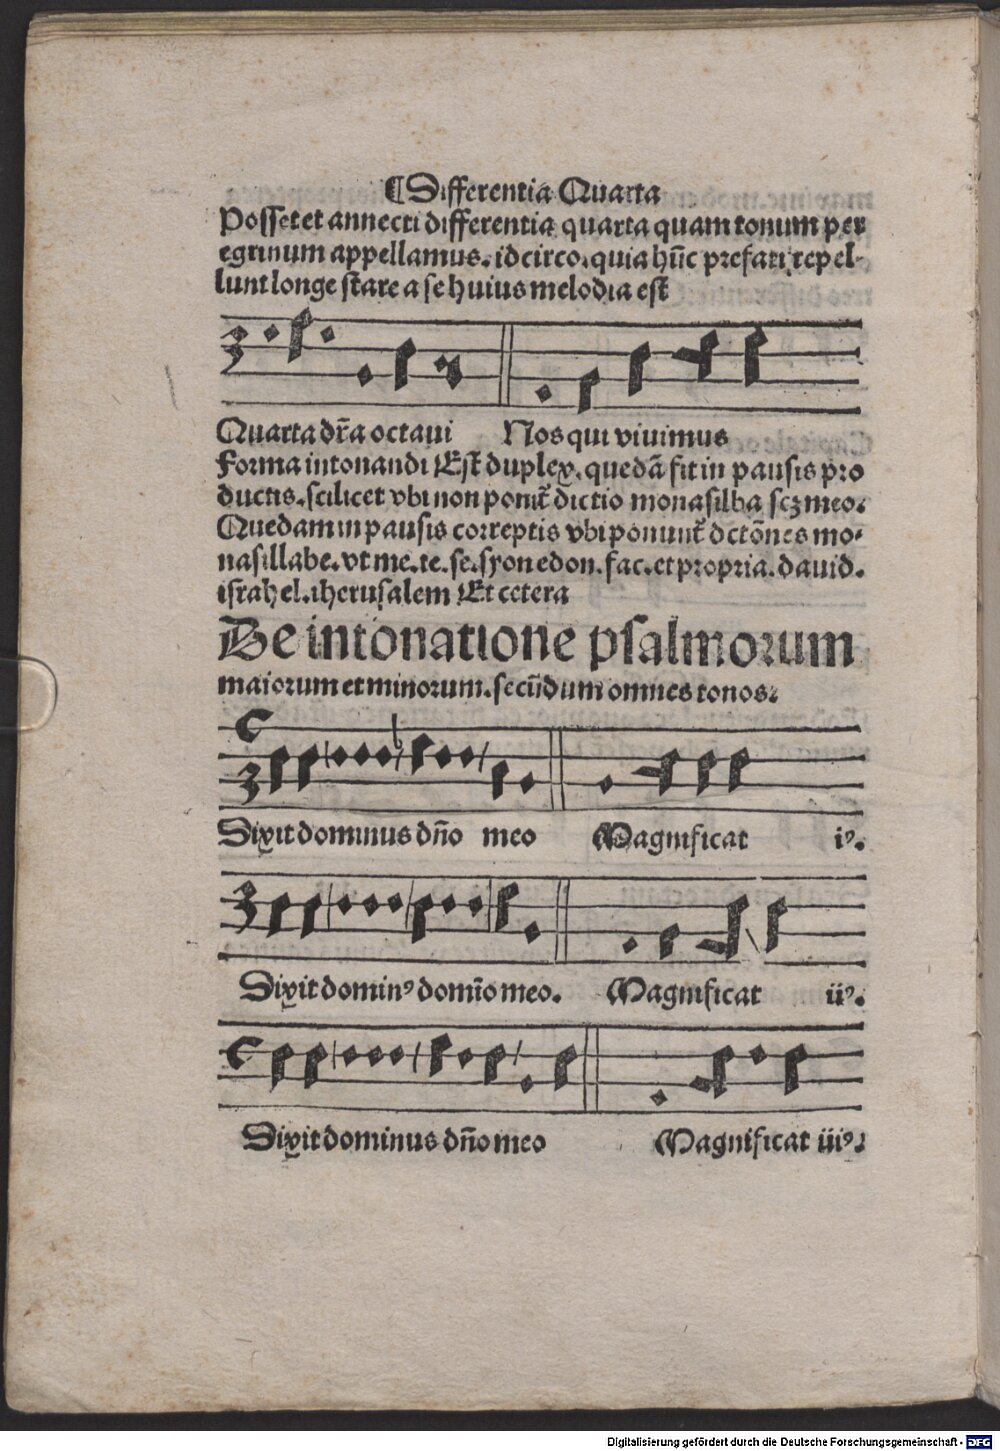 ¶Differentia Quarta
Posset et annecti differentia quarta quam tonum per
egrinum appellamus. idcirco. quia hūc prefati repel-
lunt longe stare a se huius melodia est
Quarta dr̄a octaui Nos qui viuimus
Forma intonandi Est duplex. quedā fit in pausis pro
ductis. scilicet vbi non ponit᷑ dictio monasilba scꝫ meo.
Quedam in pausis correptis vbi ponunt᷑ dctōnes mo-
nasillabe. vt me. te. se. syon edon. fac. et propria. dauid.
israhel. iherusalem Et cetera
De intonatione psalmorum
maiorum et minorum. secūdum omnes tonos.
Dixit dominus dn̄o meo Magnificat iꝰ.
Dixit dominꝰ domīo meo. Magnificat iiꝰ.
Dixit dominus dn̄o meo Magnificat iiiꝰ.
Digitalisierung gefördert durch die Deutsche Forschungsgemeinschaft - DFG